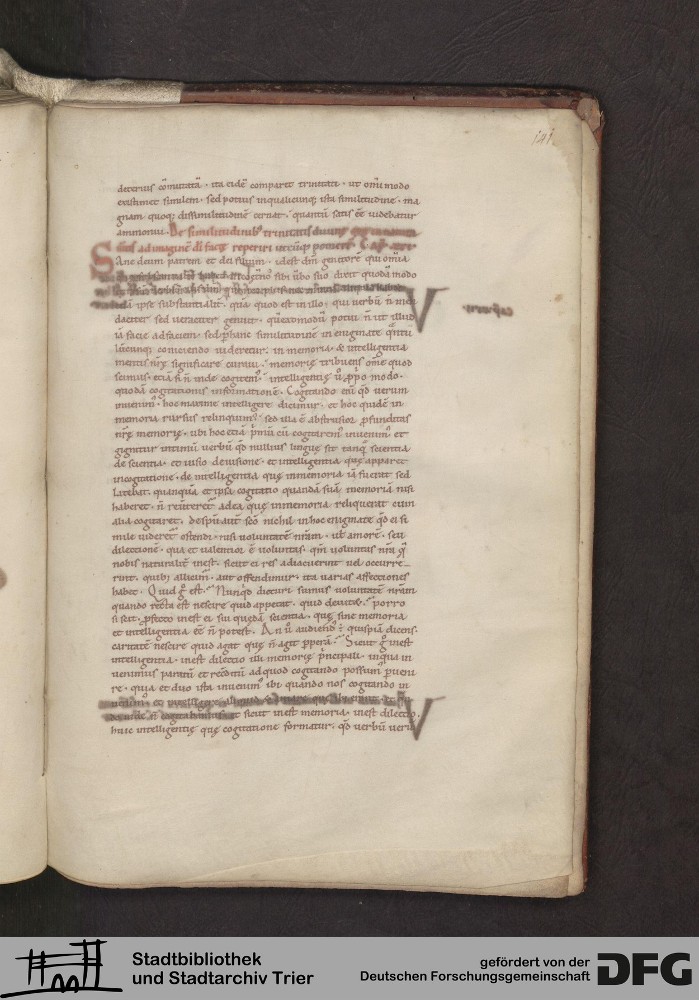 141
deterius cōmutatā · ita eidē comparet trinitati · ut om̄i modo
existimet similem · sed potius in qualicunq; ista similitudine · ma
gnam quoq; dissimilitudinē cernat · quantū satis eē videbatur
ammonui · De similitudinib; trinitatis
ad imaginē dī reperiri
Sane deum patrem et dei filium · idest dm̄ genitorē qui om̄ia
sibi ūbo suo dixit quodā modo
ipse substantialit̄ · quia quod est in illo · qui verbū n̄ men
daciter sed veraciter genuit · quēadmodū potui n̄ ut illud
iā facie ad faciem · sed p̄ hanc similitudinē in enigmate
coniciendo videretur · in memoria · & intelligentia
mentis nr̄ę significare curavi · memorię tribuens om̄e quod
scimus · etiā si n̄ inde cogitem' · intelligentię ū p̄prio modo ·
quodā cogitationis informationē · Cogitando enī qd̄ verum
invenim' · hoc maxime intelligere dicimur · et hoc quidē in
memoria rursus relinquim' · sed illa ē abstrusior p̄funditas
nr̄ę memorię · ubi hoc etiā primū cū cogitarem' invenim' et
gignitur intimū verbū qd̄ nullius linguę sit tanq̄ scientia
de scientia · et visio de visione · et intelligentia quę apparet
in cogitatione · de intelligentia quę in memoria iā fuerat sed
latebat · quanquā et ipsa cogitatio quandā suā memoriā nisi
haberet · n̄ revertēret ad ea quę in memoria reliquerat cum
alia cogitaret · De spū aut̄ scō nichil in hoc enigmate qd̄ ei si
mile videret' ostendi · nisi voluntatē nr̄am · ut̄ amorē · seu
dilectionē · quę valentior ē voluntas · qm̄ voluntas nr̄a q̄
nobis naturalit̄ inest · sicut ei res adiacuerint vel occurre
rint · quib; allicim' · aut offendimur · ita varias affectiones
habet · Quid g° est · Nunqd̄ dicturi sumus voluntatē nr̄am
quando recta est nescire quid appetat · quid devitet · Porro
si scit · p̄fecto inest ei sui quędā scientia · quę sine memoria
et intelligentia eē n̄ potest · An ū audiend' ē quispiā dicens ·
caritatē nescire quid agat quę n̄ agit ppera · Sicut g° inest
intelligentia · inest dilectio illi memorię p̄ncipali · in qua in
venimus paratū et reconditū ad quod cogitando possum' p̄veni
re · quia et duo ista invenim' ibi quando nos cogitando in
sicut inest memoria · inest dilectio
huic intelligentię quę cogitatione formatur · qd̄ verbū verū
Stadtbibliothek
und Stadtarchiv Trier
gefördert von der
Deutschen Forschungsgemeinschaft
DFG